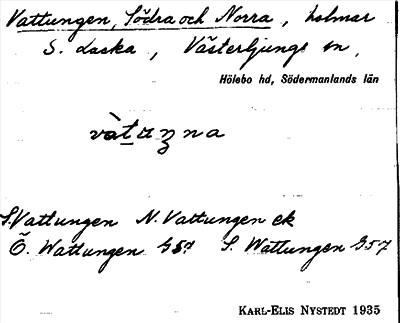 Vattungen, Södra och Norra, holmar
S. Laska, Västerljungs sn,
Hölebo hd, Södermanlands län
vàtuŋna
S. Vattungen N. Vattungen ek
Ö. Wattungen G57 S. Wattungen G57
KARL-ELIS NYSTEDT 1935